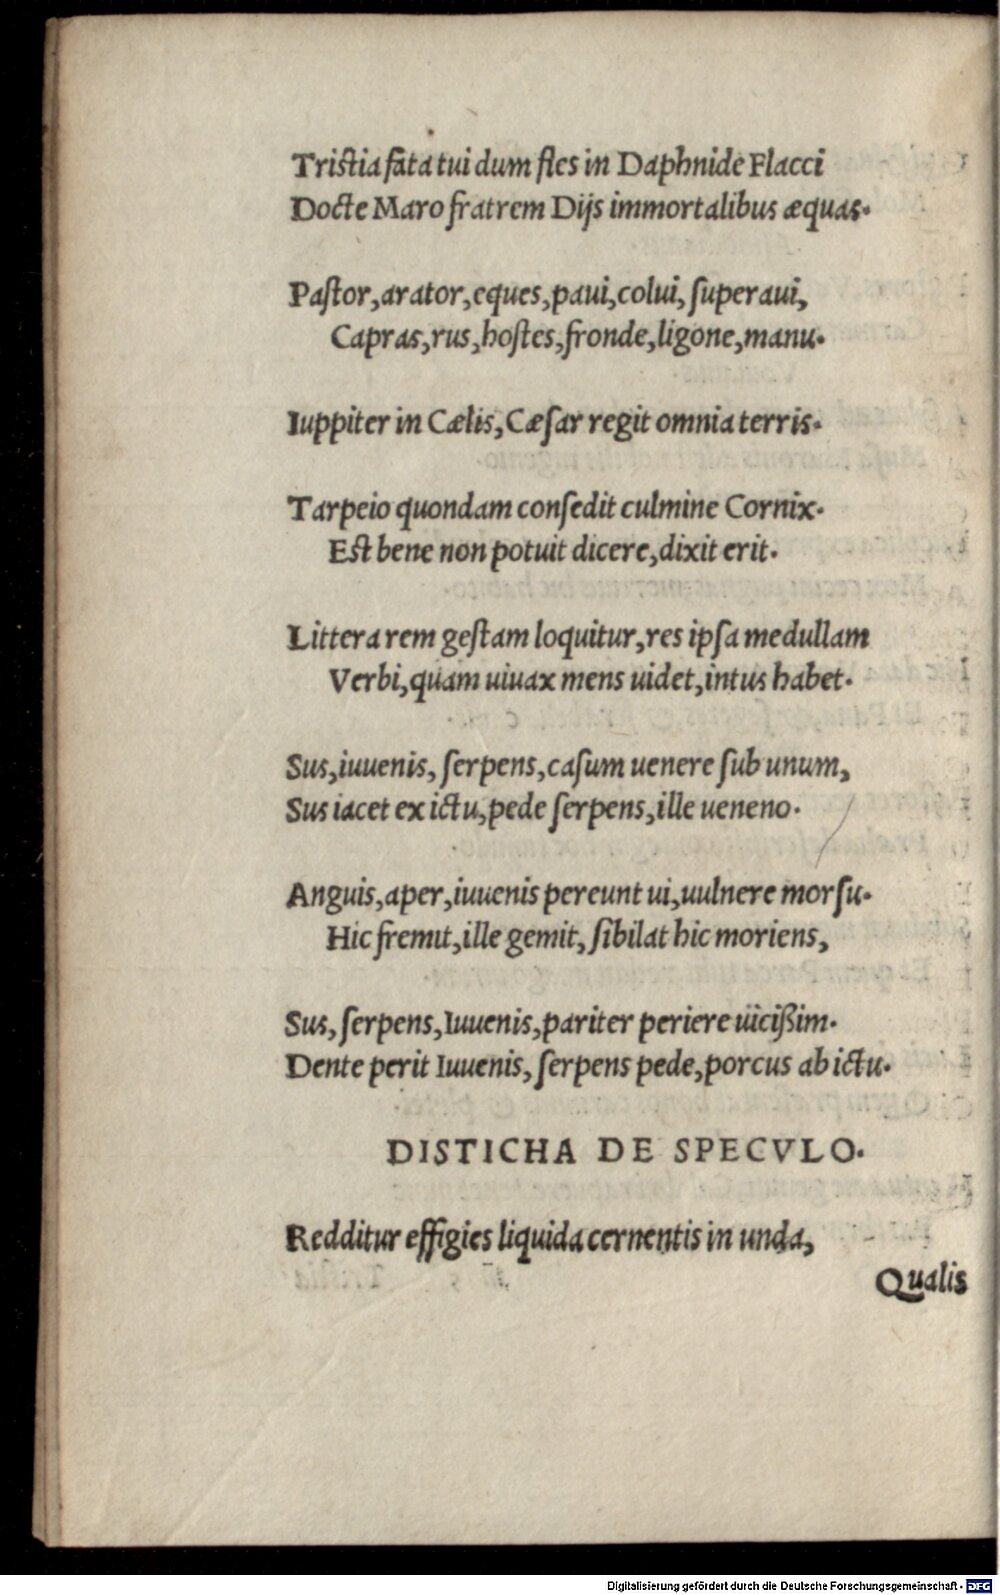 Tristia fata tui dum fles in Daphnide Flacci
Docte Maro fratrem Dijs immortalibus æquas.
Paſtor, arator, eques, paui, colui, ſuperaui,
Capras, rus, hoſtes, fronde, ligone, manu.
Iuppiter in Cælis, Cæſar regit omnia terris.
Tarpeio quondam conſedit culmine Cornix.
Est bene non potuit dicere, dixit erit.
Littera rem geſtam loquitur, res ipſa medullam
Verbi, quam uiuax mens uidet, intus habet.
Sus, iuuenis, ſerpens, caſum uenere ſub unum,
Sus iacet ex ictu, pede ſerpens, ille ueneno.
Anguis, aper, iuuenis pereunt ui, uulnere morſu.
Hic fremit, ille gemit, ſibilat hic moriens,
Sus, ſerpens, Iuuenis, pariter periere uiciſsim.
Dente perit Iuuenis, ſerpens pede, porcus ab ictu.
DISTICHA DE SPECVLO.
Redditur effigies liquida cernentis in unda,
Qualis
Digitalisierung gefördert durch die Deutsche Forschungsgemeinschaft - DFG